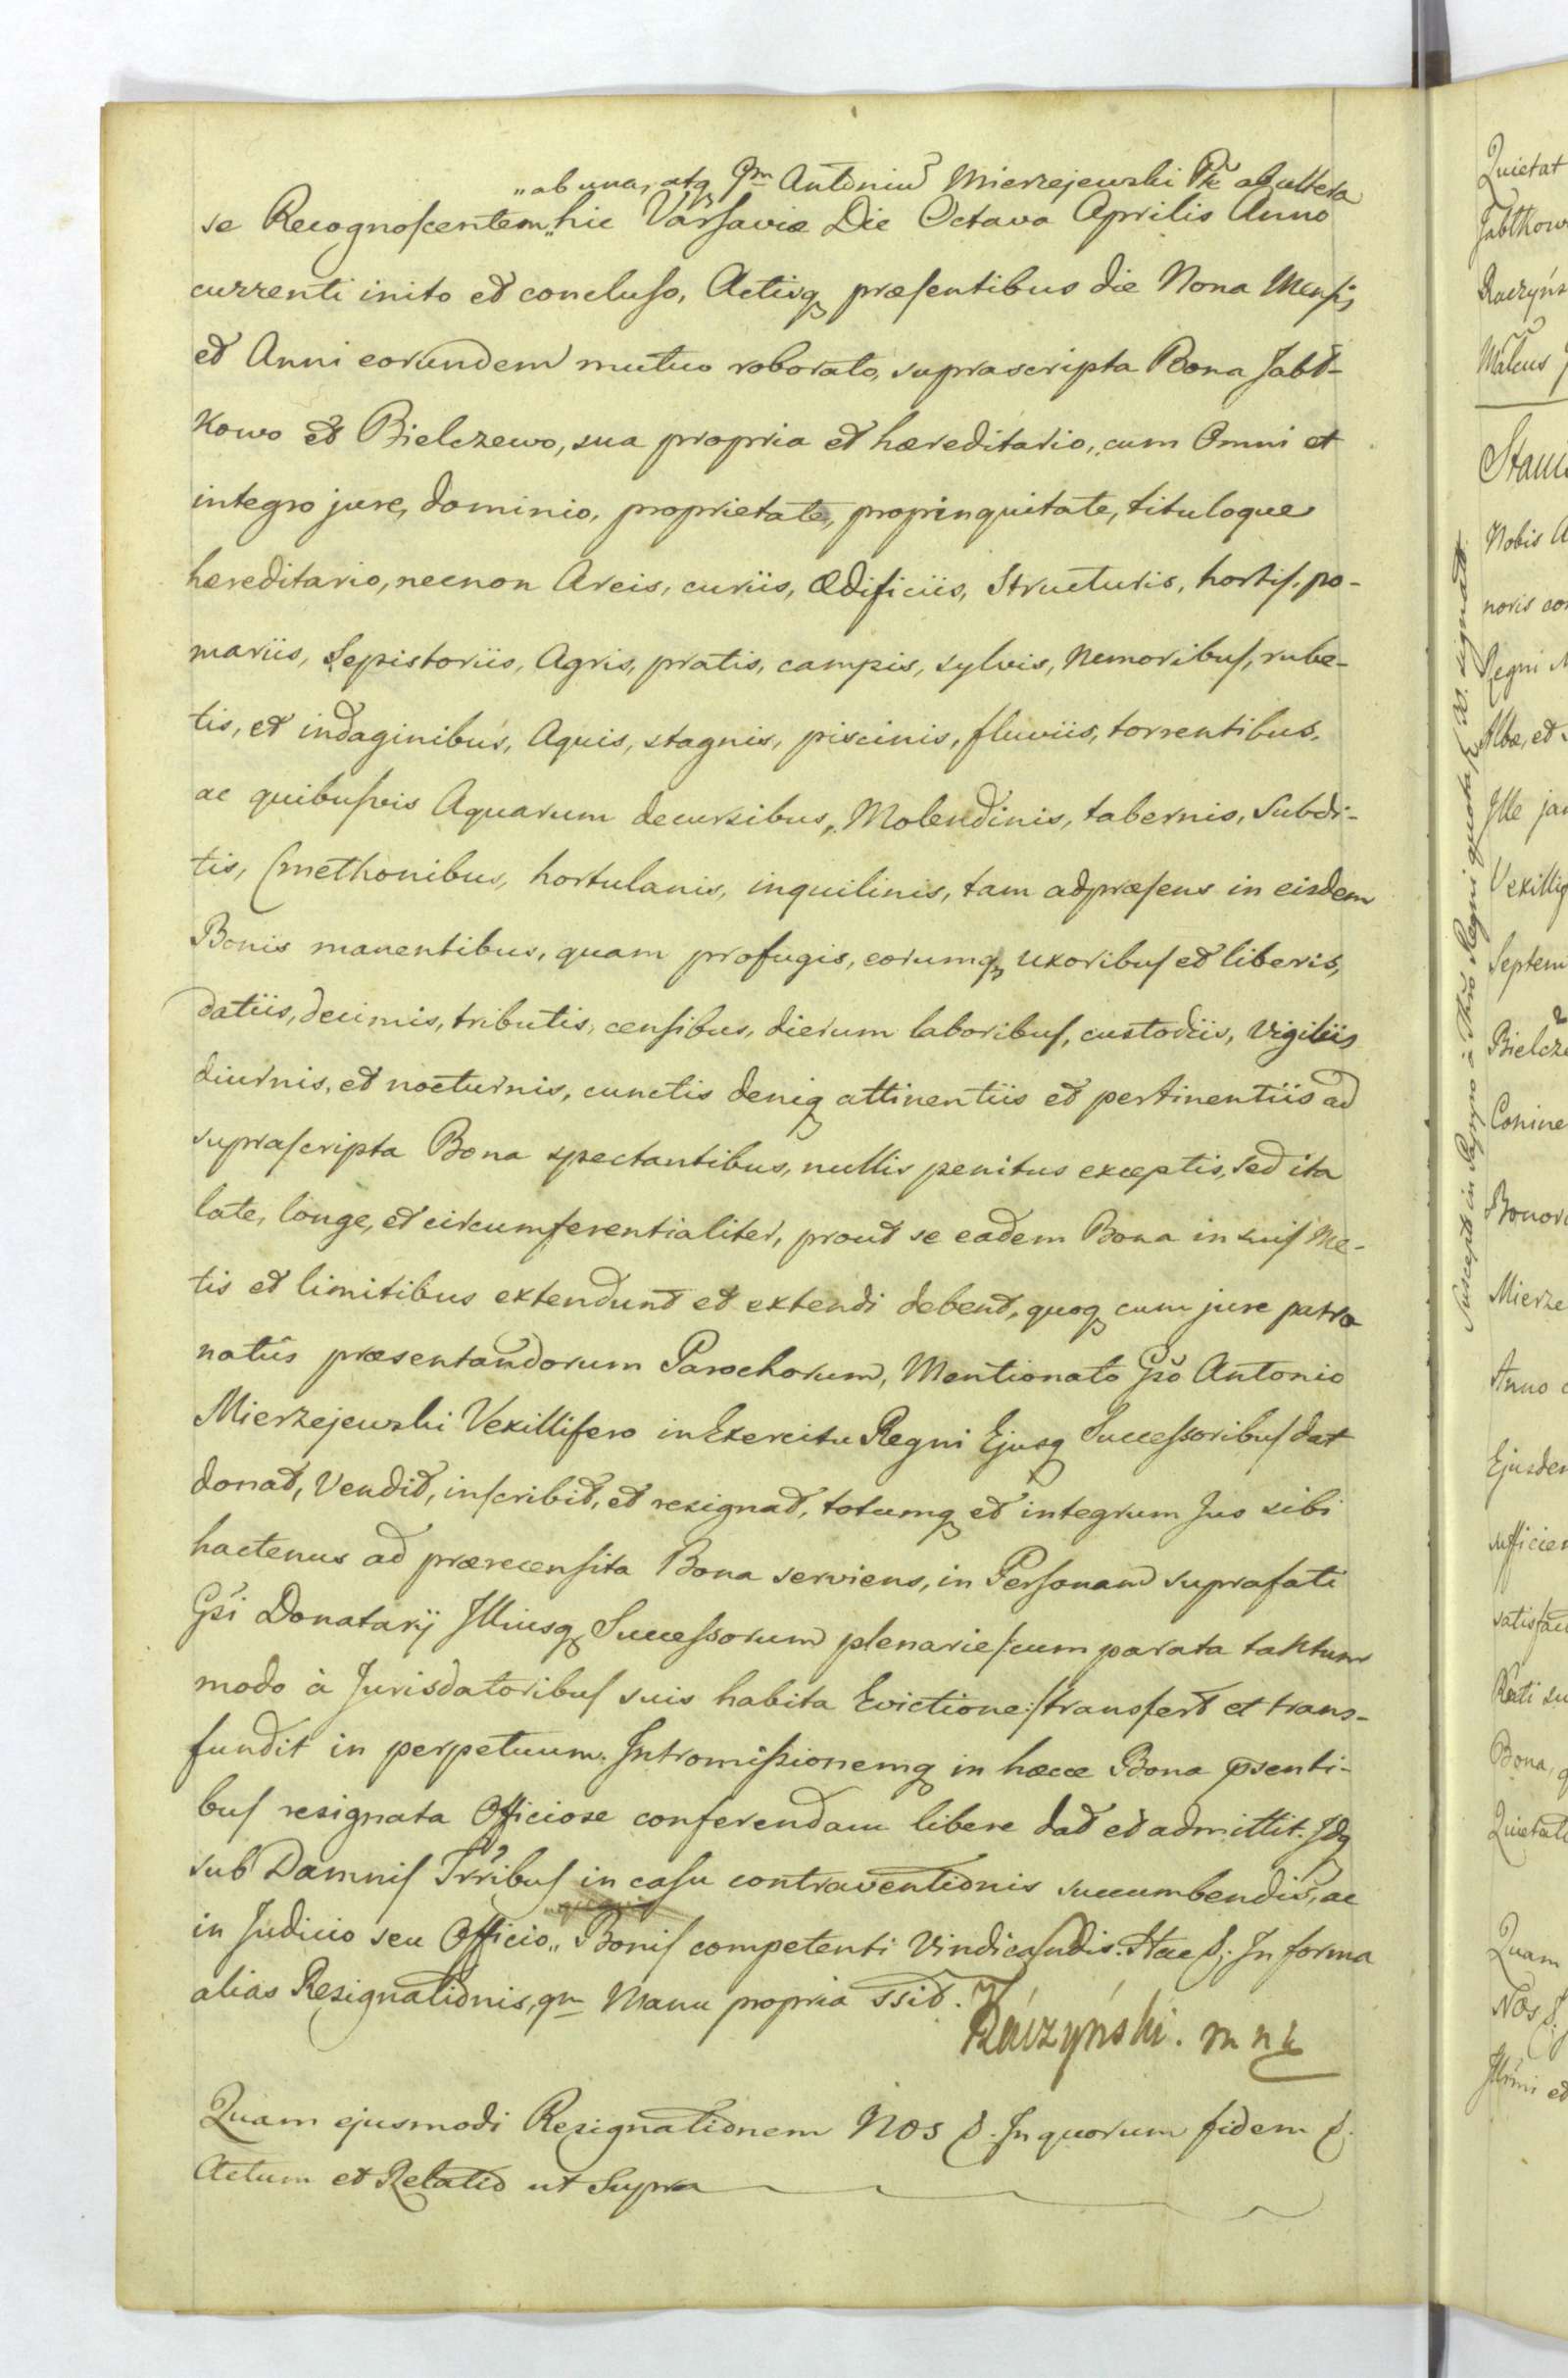 „ab una, atq Gm Antoniu Mierzejewski Ptē ab altera
se Recognoscentem„ hic Varsaviæ Die Octava Aprilis Anno
currenti inito et concluso, Actisq præsentibus die Nona Mensis
et Anni eorundem mutuo roborato, suprascripta Bona Jabł-
kowo et Bielczewo, sua propria et hæreditaria, cum Omni et
integro jure, dominio, proprietate, propinquitate, tituloque
hæreditario, necnon Areis, curiis, Ædificiis, Structuris, hortis, po-
mariis, Sepistoriis, Agris, pratis, campis, sylvis, Nemoribus, rube-
tis, et indaginibus, Aquis, stagnis, piscinis, fluviis, torrentibus,
ac quibusvis Aquarum decursibus, Molendinis, tabernis, Subdi-
tis, Cmethonibus, hortulanis, inquilinis, tam adpræsens in eisdem
Bonis manentibus, quam profugis, eorumq uxoribus et liberis,
datiis, decimis, tributis, censibus, dierum laboribus, custodiis, Vigiliis
diurnis, et nocturnis, cunctis deniq attinentiis et pertinentiis ad
suprascripta Bona spectantibus, nullis penitus exceptis, sed ita
late, longe, et circumferentialiter, prout se eadem Bona in suis Me-
tis et limitibus extendunt et extendi debent, quoq cum jure patro
natûs præsentandorum Parochorum, Mentionato Gsŏ Antonio
Mierzejewski Vexillifero in Exercitu Regni Ejusq Successoribus dat
donat, Vendit, inscribit, et resignat, totumq et integrum Jus sibi
hactenus ad prærecensita Bona serviens, in Personam suprafati
Gsi Donatarÿ Illiusq Successorum plenarie /cum parata tantum
modo à Jurisdatoribus suis habita Evictione:/ transfert et trans-
fundit in perpetuum. Intromissionemq in hæcce Bona p̄senti-
bus resignata Officiose conferendam libere dat et admittit. Idq
sub Damnis Trr̃ibus in casu contraventionis succumbendis, ac
in Judicio seu Officio„ Bonis competenti Vindicandis. Hac &. In forma
alias Resignationis, qm Manu propria ssit.
Raczyński. m n k
Quam ejusmodi Resignationem Nos &. In quorum fidem &.
Actum et Relatio ut Supra
Quietat
Jabłkow
Raczyńs
Stani
Nobis A
noris co
Regni M
Albæ, et
Ille ja
Vexillif
Septem
Bielcze
Conine
Bonor
Mierze
Anno
Ejusdem
sufficien
satisfac
Bona, q
Quietat
Quam
Nos &.